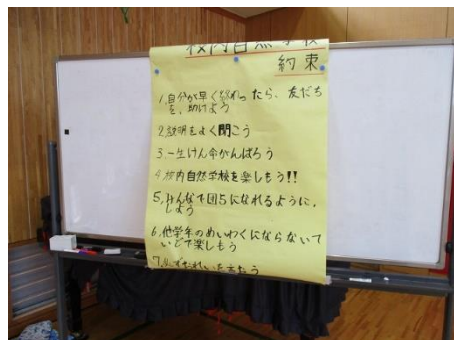 校内自然学校
約束
1.自分が早く終わったら、友だち
を、助けよう
2.説明をよく聞こう
3.一生けん命がんばろう
4.校内自然学校を楽しもう!!
5.みんなで団5になれるように、
しよう
6.他学年のめいわくにならないて
いどで楽しもう